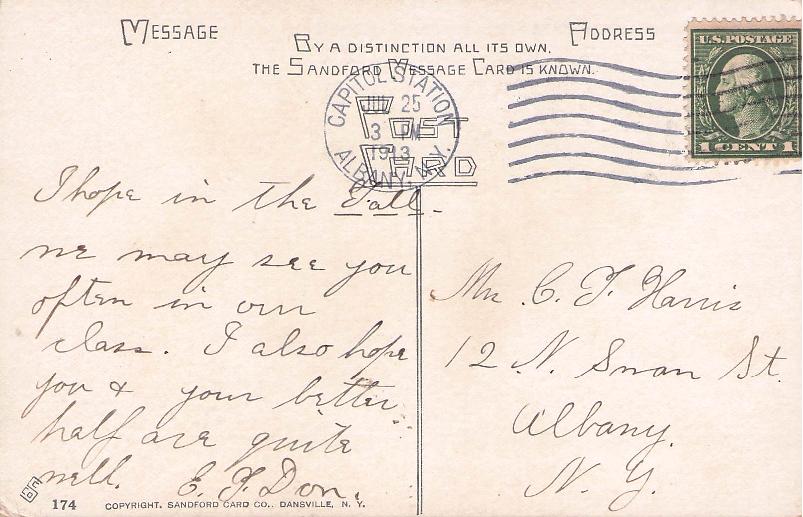 MESSAGE
ADDRESS
BY A DISTINCTION ALL ITS OWN,
THE SANDFORD MESSAGE CARD IS KNOWN.
POST
CARD
CAPITOL STATION
JUL 25
3 PM
1913
ALBANY, N.Y.
U.S. POSTAGE
1 CENT 1
I hope in the Fall
we may see you
often in our
class. I also hope
you & your better
half are quite
well. E. F. Don.
Mr. C. F. Harris
12 N. Swan St.
Albany.
N. Y.
174 COPYRIGHT, SANDFORD CARD CO., DANSVILLE, N. Y.